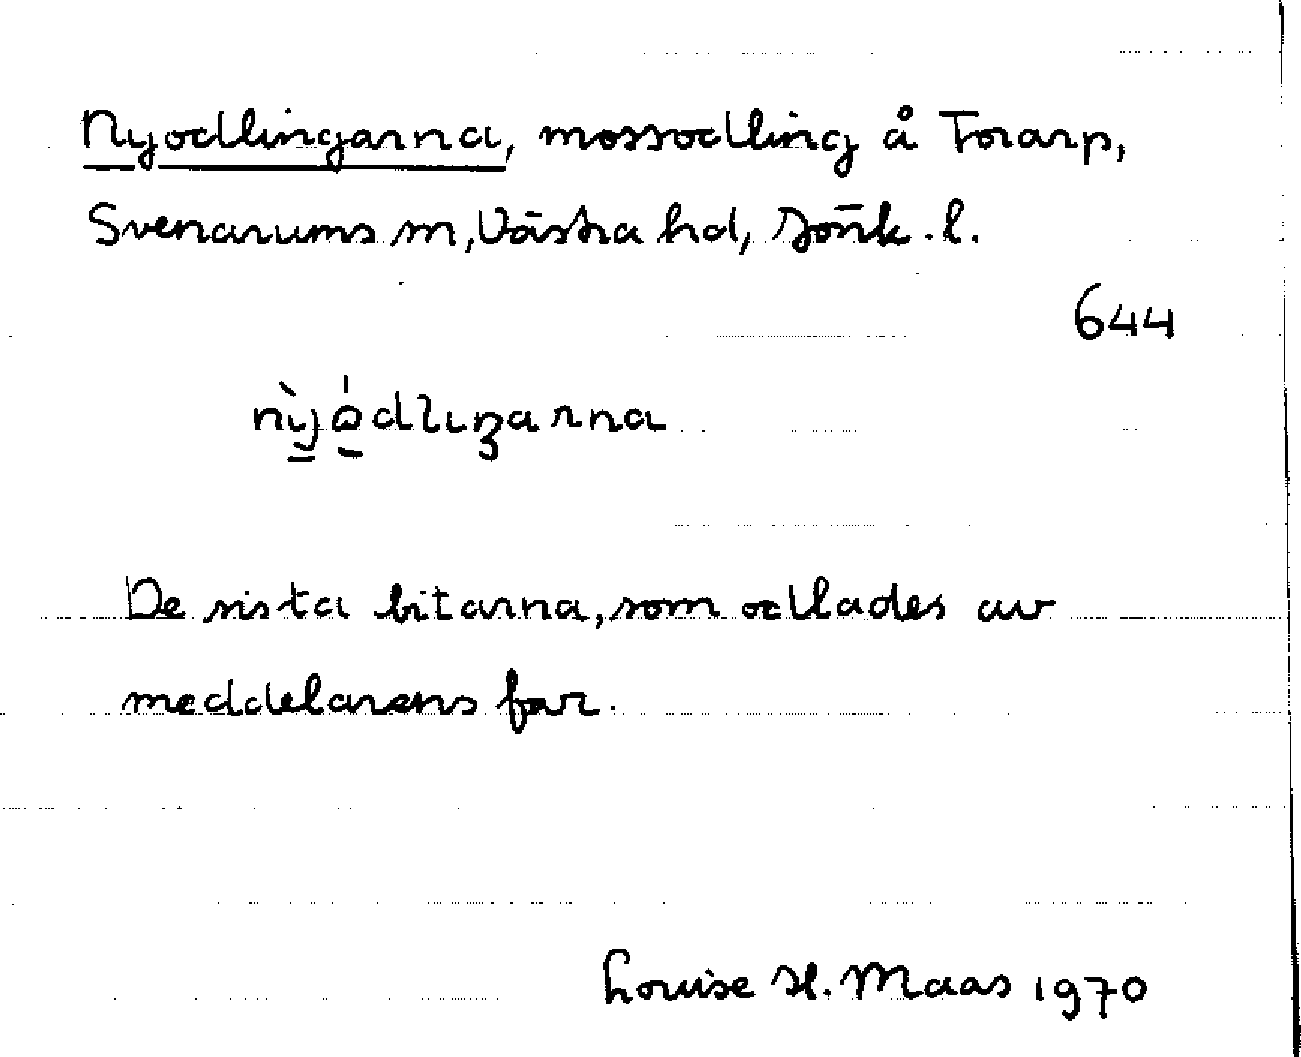 Nyodlingarna, mossodling å Torarp,
Svenarums sn, Västra hd, Jönk. l.
644
De sista bitarna, som odlades av
meddelarens far.
Louise H. Maas 1970